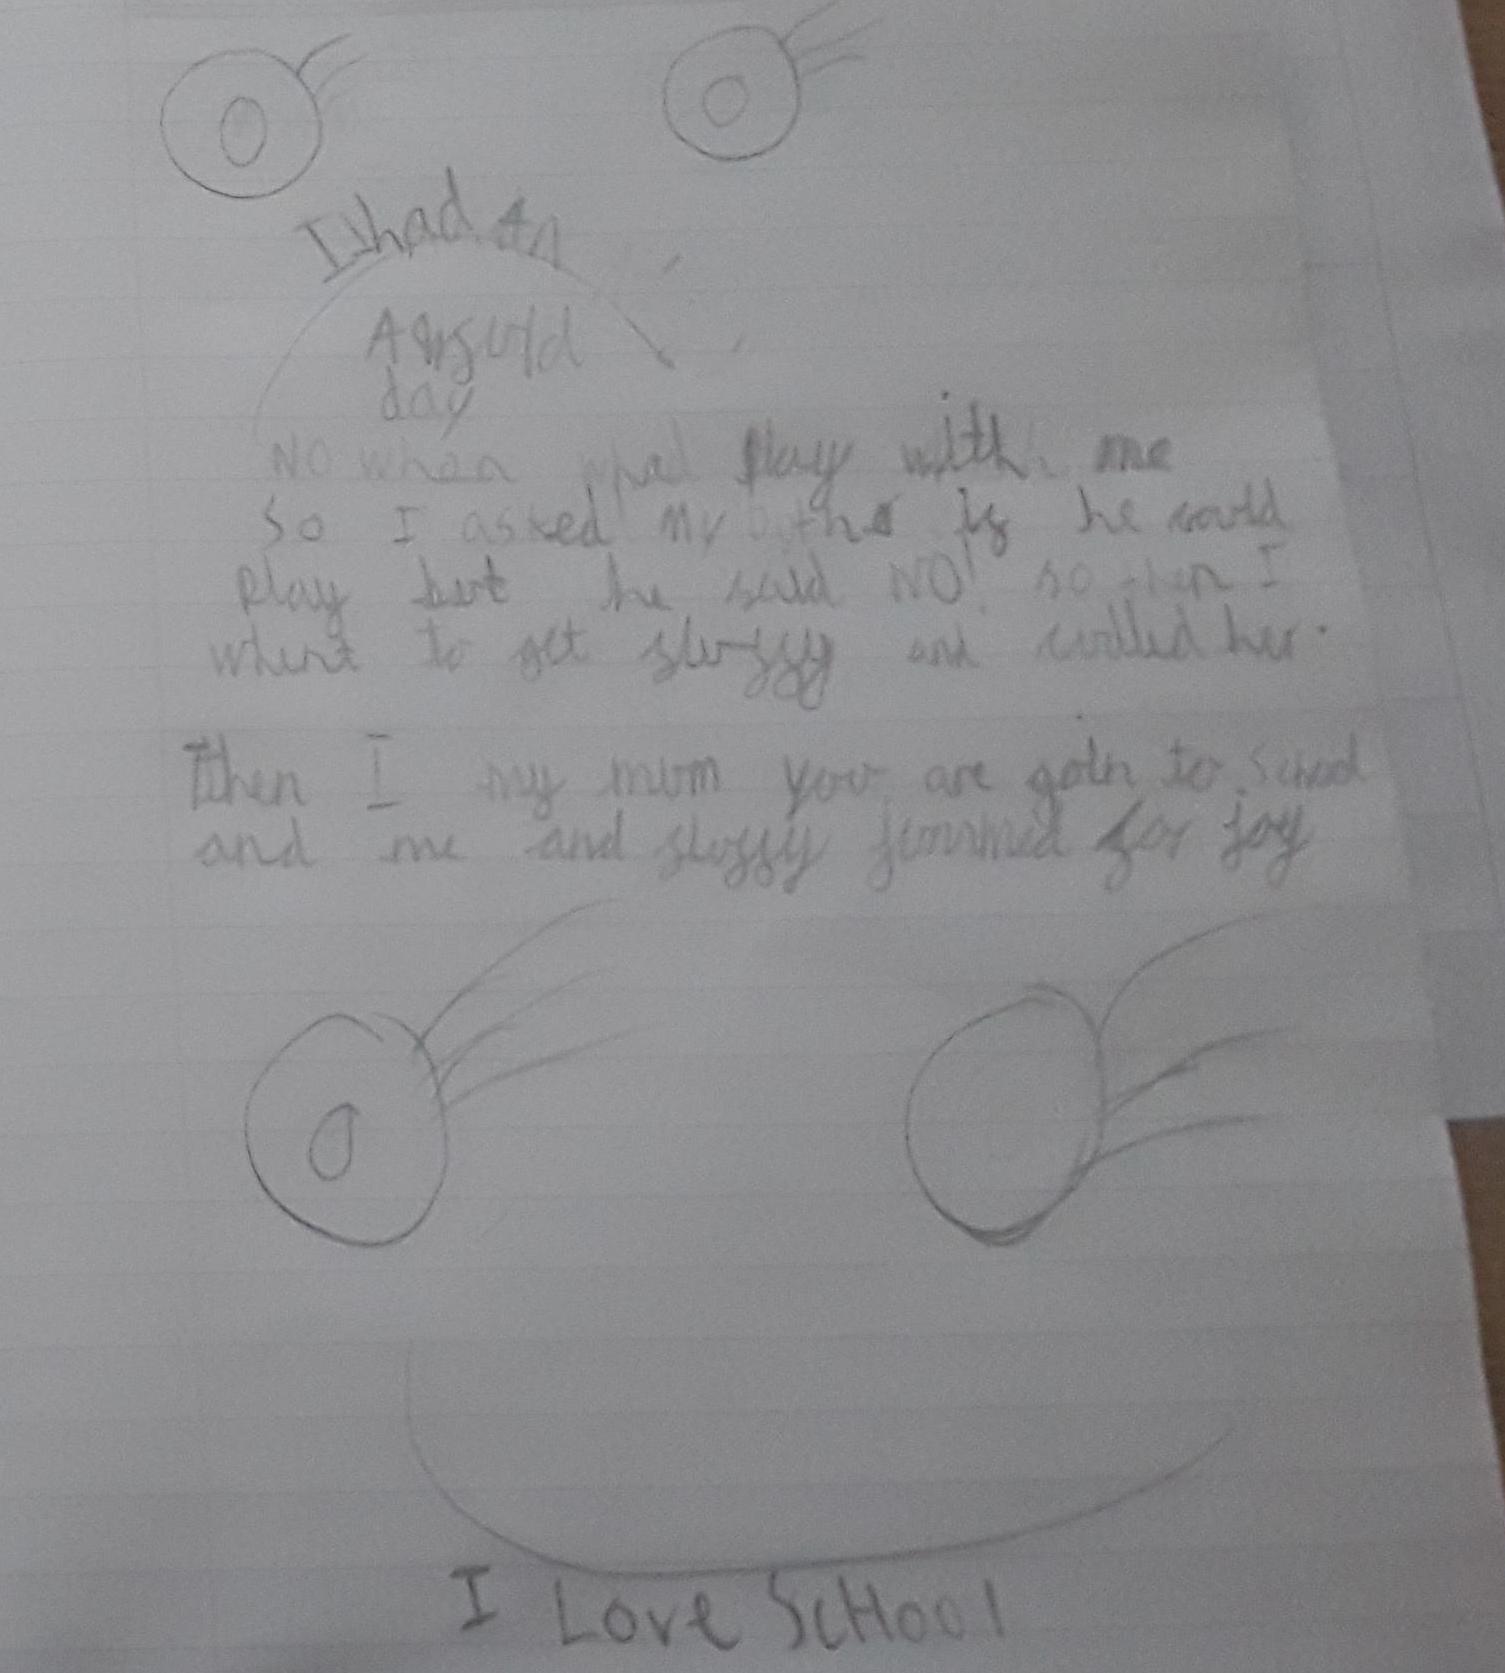 I had an
day
NO when play with me
so I asked my if he could
play but he said NO! so then I
whent to get sluggy and culled her.
Then I my mum you are goin to school
and me and sluggy jummed for joy
I LOVE SCHOOl